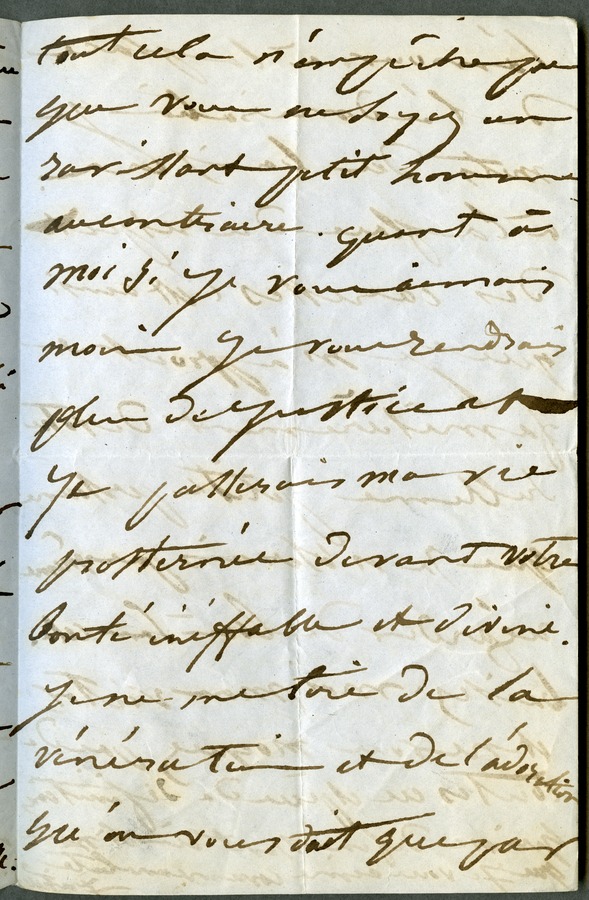 tout cela n'empêche pas
que vous ne soyez un
ravissant petit homme
au contraire. quant à
moi si je vous aimais
moins je vous rendrais
plus de justice et
je passerais ma vie
prosternée devant votre
bonté inéffable et divine.
je ne me tire de la
vénération et de l'adoration
qu'on vous doit que par